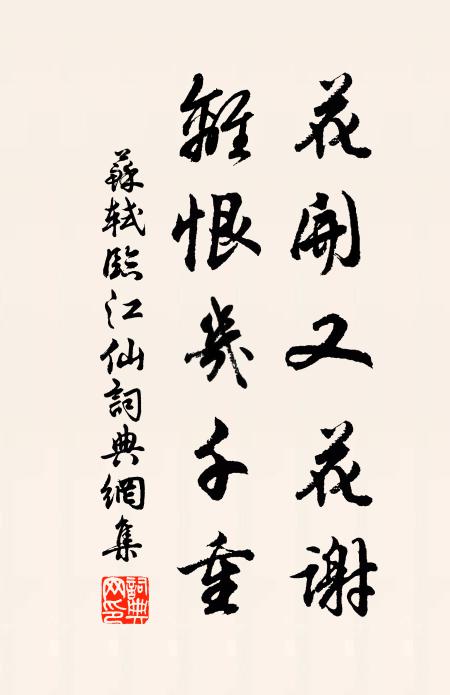 花開又花謝
離恨幾千重
蘇軾臨江仙詞典網集
詞典網印